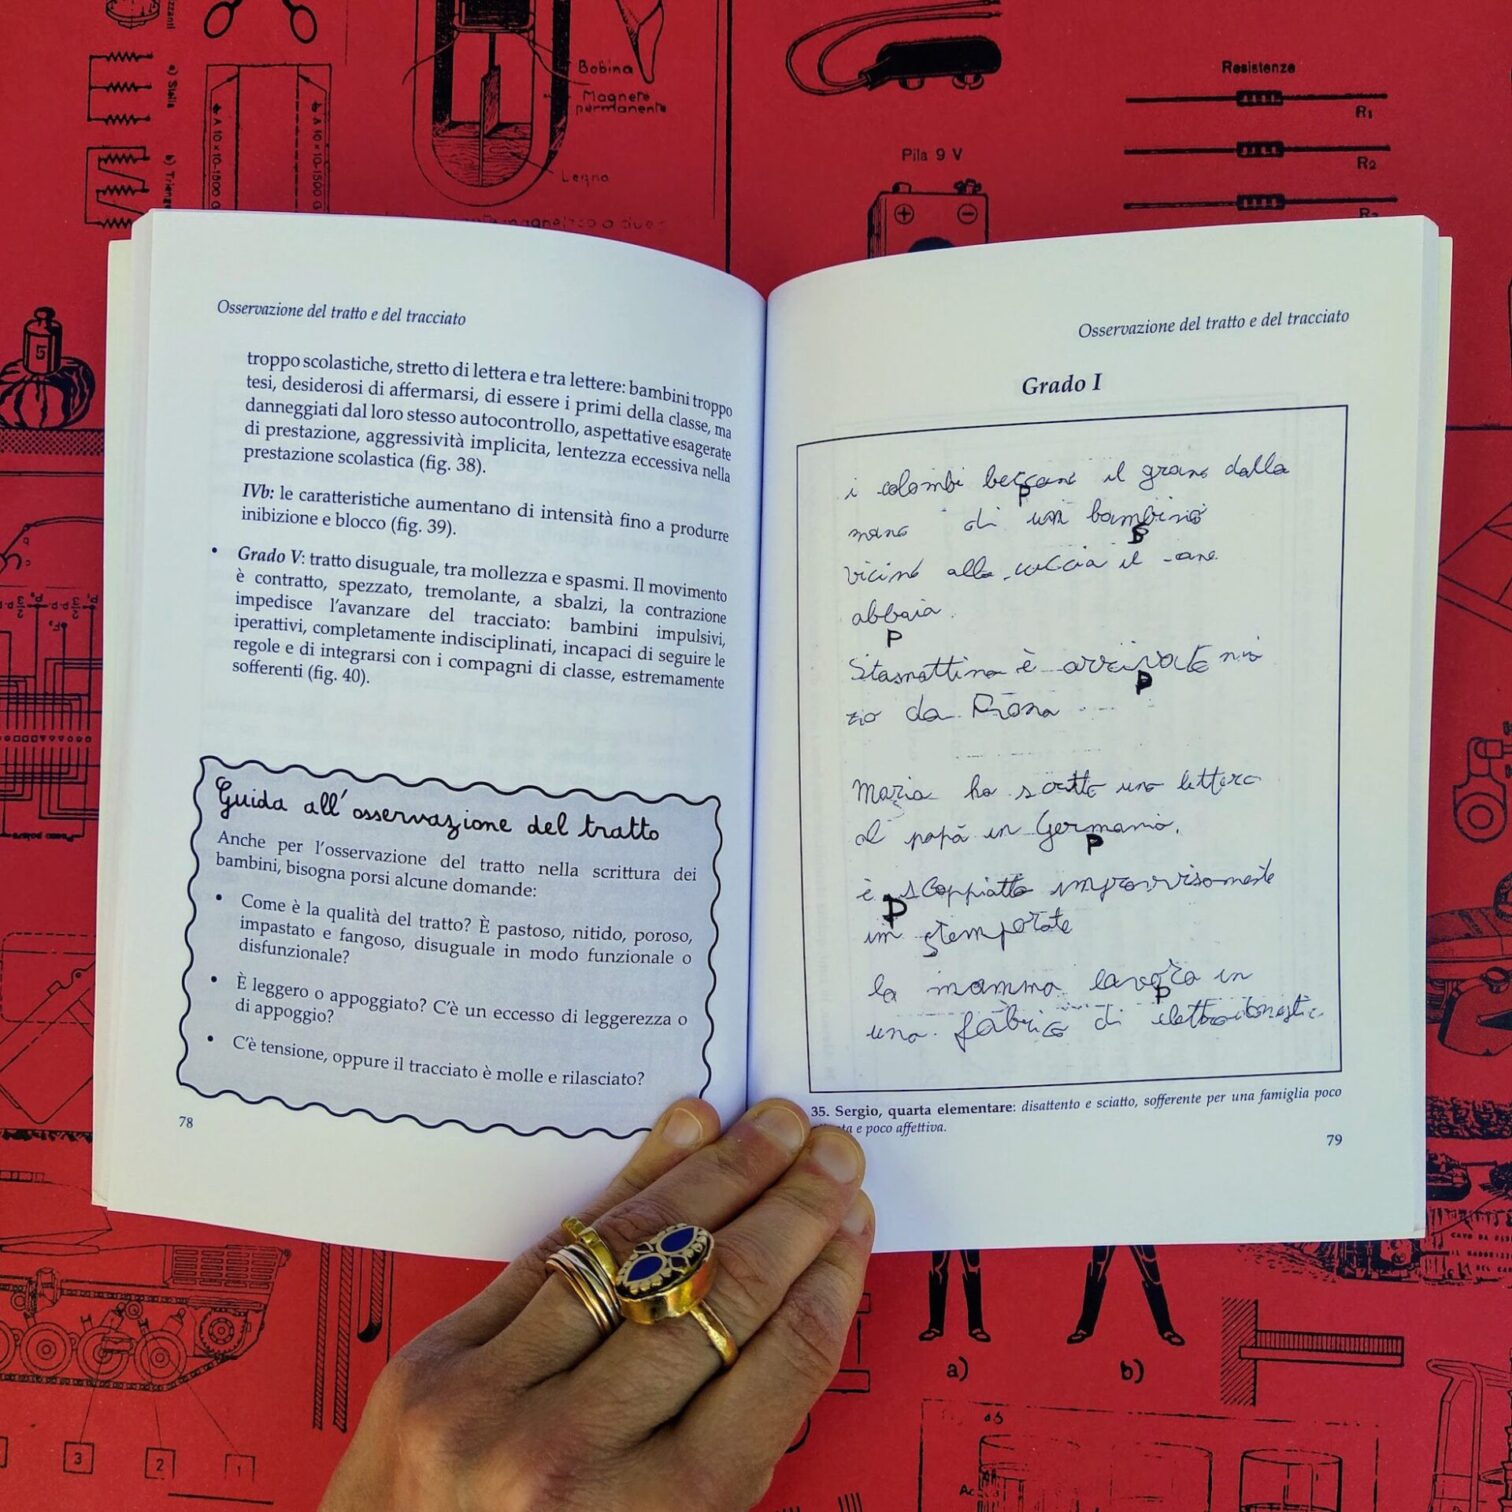 Bobina
Magnete
permanente
Legno
a) Stella
A 10×10-1500
Resistenze
R1
R2
Pila 9 V
5
Osservazione del tratto e del tracciato
troppo scolastiche, stretto di lettera e tra lettere: bambini troppo
tesi, desiderosi di affermarsi, di essere i primi della classe, ma
danneggiati dal loro stesso autocontrollo, aspettative esagerate
di prestazione, aggressività implicita, lentezza eccessiva nella
prestazione scolastica (fig. 38).
IVb: le caratteristiche aumentano di intensità fino a produrre
inibizione e blocco (fig. 39).
• Grado V: tratto disuguale, tra mollezza e spasmi. Il movimento
è contratto, spezzato, tremolante, a sbalzi, la contrazione
impedisce l'avanzare del tracciato: bambini impulsivi,
iperattivi, completamente indisciplinati, incapaci di seguire le
regole e di integrarsi con i compagni di classe, estremamente
sofferenti (fig. 40).
Guida all'osservazione del tratto
Anche per l'osservazione del tratto nella scrittura dei
bambini, bisogna porsi alcune domande:
• Come è la qualità del tratto? È pastoso, nitido, poroso,
impastato e fangoso, disuguale in modo funzionale o
disfunzionale?
• È leggero o appoggiato? C'è un eccesso di leggerezza o
di appoggio?
• C'è tensione, oppure il tracciato è molle e rilasciato?
78
Osservazione del tratto e del tracciato
Grado I
i colombi beccano il grano dalla
P
mano di un bambino
S
vicino alla cuccia il cane
abbaia.
P
Stasmattina è arrivato mio
P
zio da Roma
Maria ha scritto una lettera
al papà in Germania.
P
è scoppiatto improvvisamente
P
im stemporate
la mamma lavora in
P
una fabrica di
35. Sergio, quarta elementare: disattento e sciatto, sofferente per una famiglia poco
e poco affettiva.
79
a)
b)
3
2
1